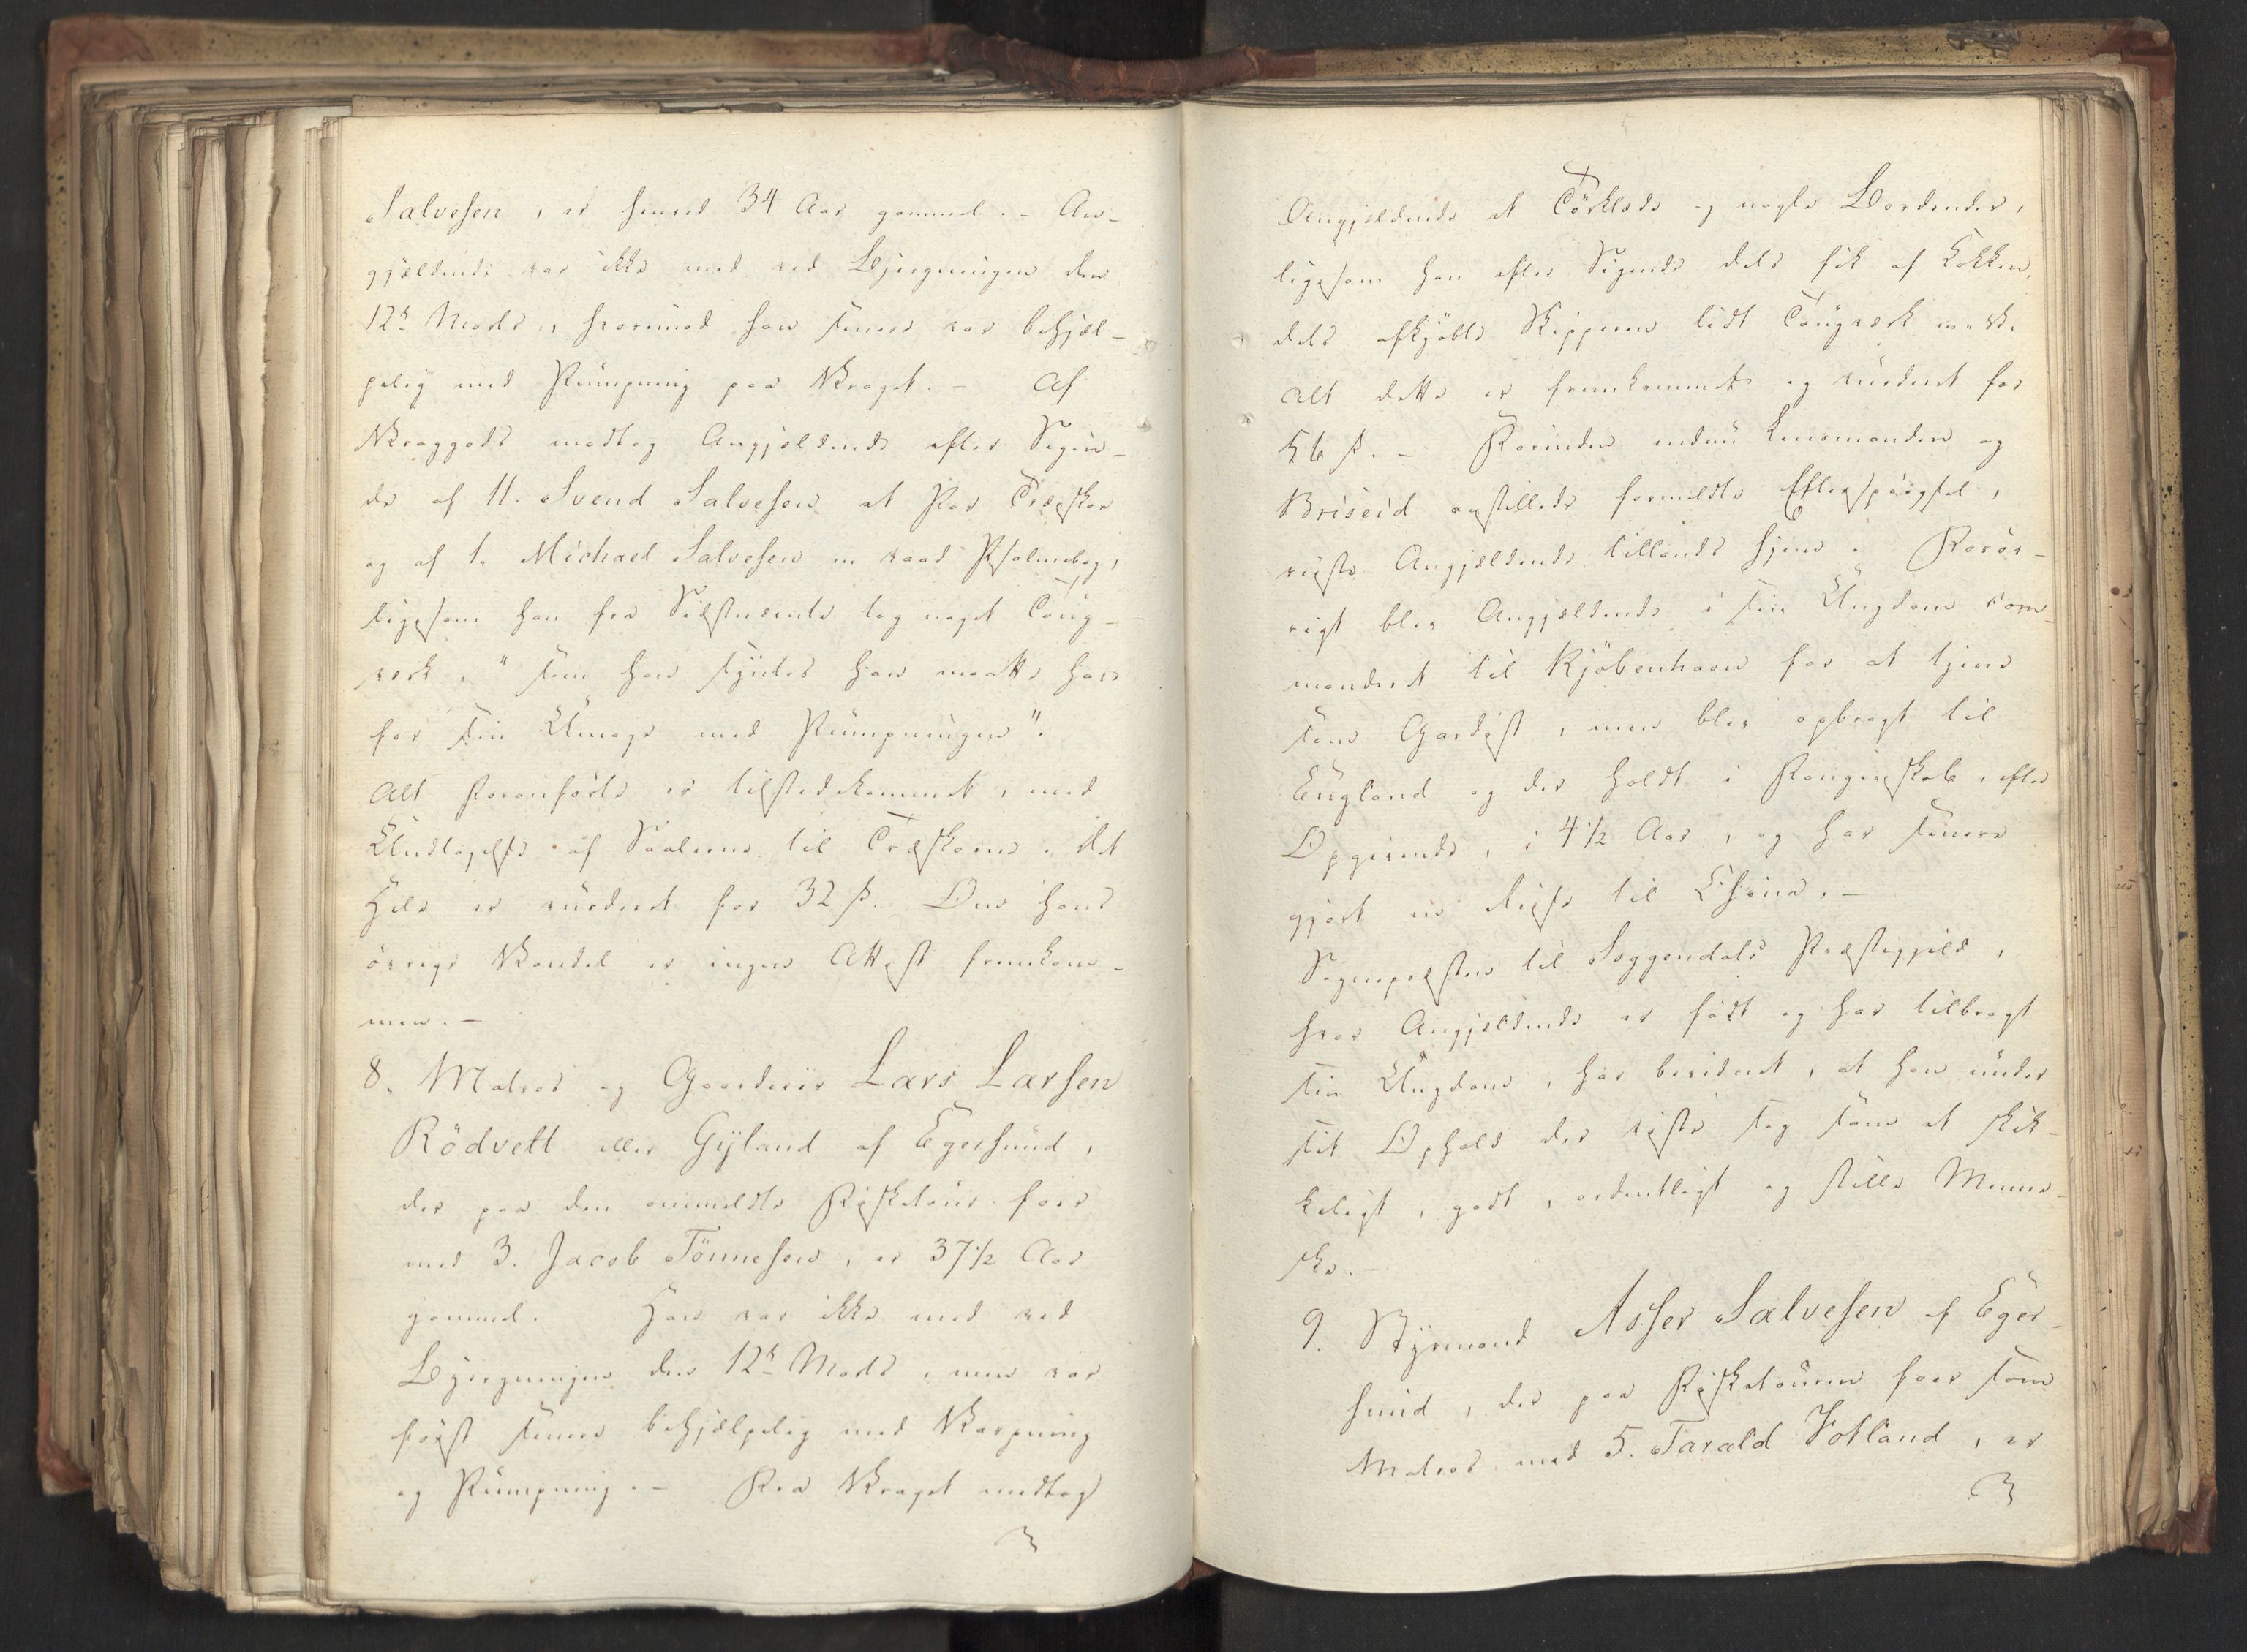 Salvesen, er henved 34 Aar gammel. – An-
gjældende var ikke med ved Bjergningen den
12te Marts, hvorimod han senere var behjæl-
pelig med Pumpning paa Vraget. – Af
Vraggods modtog Angjældende efter Sigen-
de af 11. Svend Salvesen et Par Træskoe
og af 1. Michael Salvesen en vaad Psalmebog,
ligesom han fra tog noget Toug-
værk, "som han syntes han maatte have
for sin Umage med Pumpningen".
Alt Foranførte er tilstedekommet, med
Undtagelse af Saalerne til Træskoene. Det
Hele er vurderet for 32 ß. Om hans
øvrige Vandel er ingen Attest fremkom-
men. –
8. Matros og Gaardeier Lars Larsen
Rödvelt eller Gyland af Egersund,
der paa den ommeldte Fisketour foer
med 3. Jacob Tönnesen, er 37 1/2 Aar
gammel. Han var ikke med ved
Bjergningen den 12te Marts, men var
først senere behjælpelig med Varpning
og Pumpning. – Fra Vraget modtog
Angjældende et Törklæde og nogle Bordender,
ligesom han efter Sigende dels fik af Kokken,
dels afkjøbte Skipperen lidt Tougværk m. v.
Alt dette er fremkommet og vurderet for
56 ß. – Forinden endnu Lensmanden og
Briseid anstillede formeldte Efterspørgsel,
reiste Angjældende tillands hjem. Forøv-
rigt blev Angjældende i sin Ungdom com-
manderet til Kjöbenhavn for at tjene
som Gardist, men blev opbragt til
England og der holdt i Fangenskab, efter
Opgivende, i 4 1/2 Aar, og har senere
gjort en Reise til China. –
Sognepræsten til Soggendals Præstegjeld,
hvor Angjældende er født og har tilbragt
sin Ungdom, har bevidnet, at han under
sit Ophold der viste sig som et skik-
keligt, godt, ordentligt og stille Menne-
ske. –
9. Styrmand Asser Salvesen af Eger-
sund, der paa Fisketouren foer som
Matros med 5. Tarald Votland, er